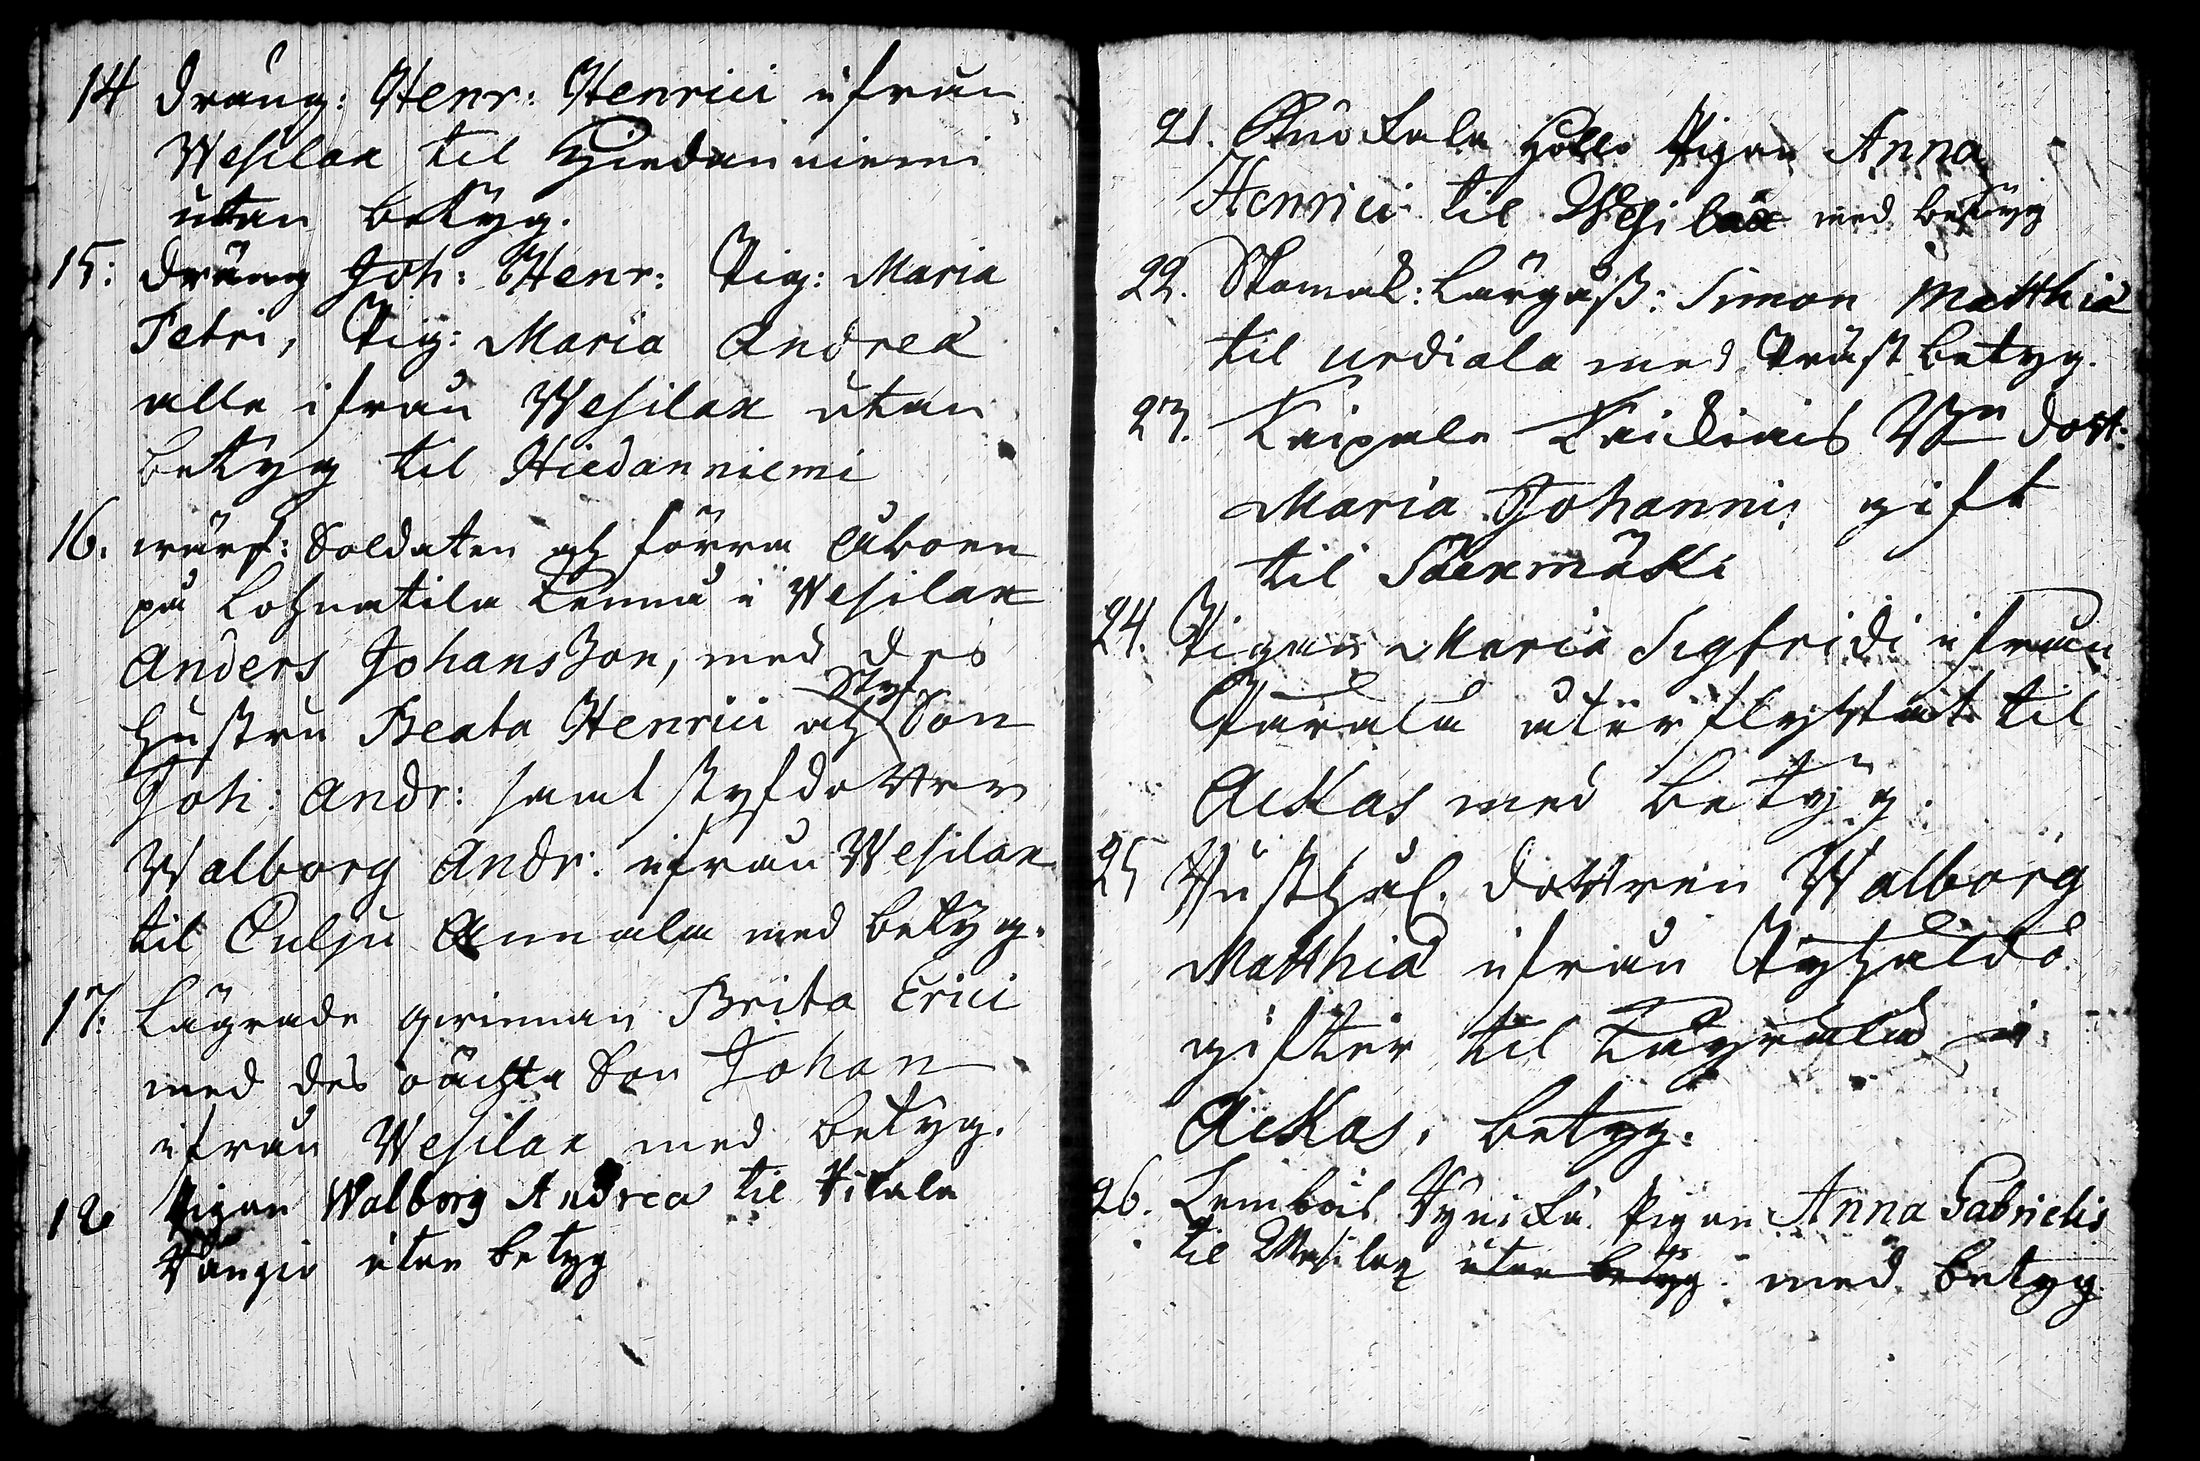 14 dräng: Henr: Henrici ifrån
Wesilax til Hiedanniemi
utan betyg.
15: dräng Joh: Henr: Pig: Maria
Petri, Pig: Maria Andreæ
alle ifrån Wesilax utan
betyg til Hiedanniemi
16. wärf: Soldaten och förra åboen
på Lohnatila Temma i Wesilax
Anders Johansson, med des
hustru Beata Henrici och Styf Son
Joh: Andr: samt styfdottren
Walborg Andr: ifrån Wesilax
til Culju Annala med betyg.
17. Lägrade qvinnan Brita Erici
med des oächta Son Johan
ifrån Wesilax med betyg.
18 Pigan Walborg Andreæ til
utan betyg
21. Pigan Anna
Henrici til Wesilax med betyg
22. Skomak: Lärgåss: Simon Matthiæ
til urdiala med Präst betyg.
23. Kaipala dott:
Maria Johannis gift
til Säexmäki
24. Pigan Maria Sigfridi ifrån
återflyttat til
Ackas med betyg.
25 dottren Walborg
Matthiæ ifrån
gifter til i
Ackas, betyg.
26. Lembois Pigan Anna Gabrielis
til Wesilax utan betyg med betyg